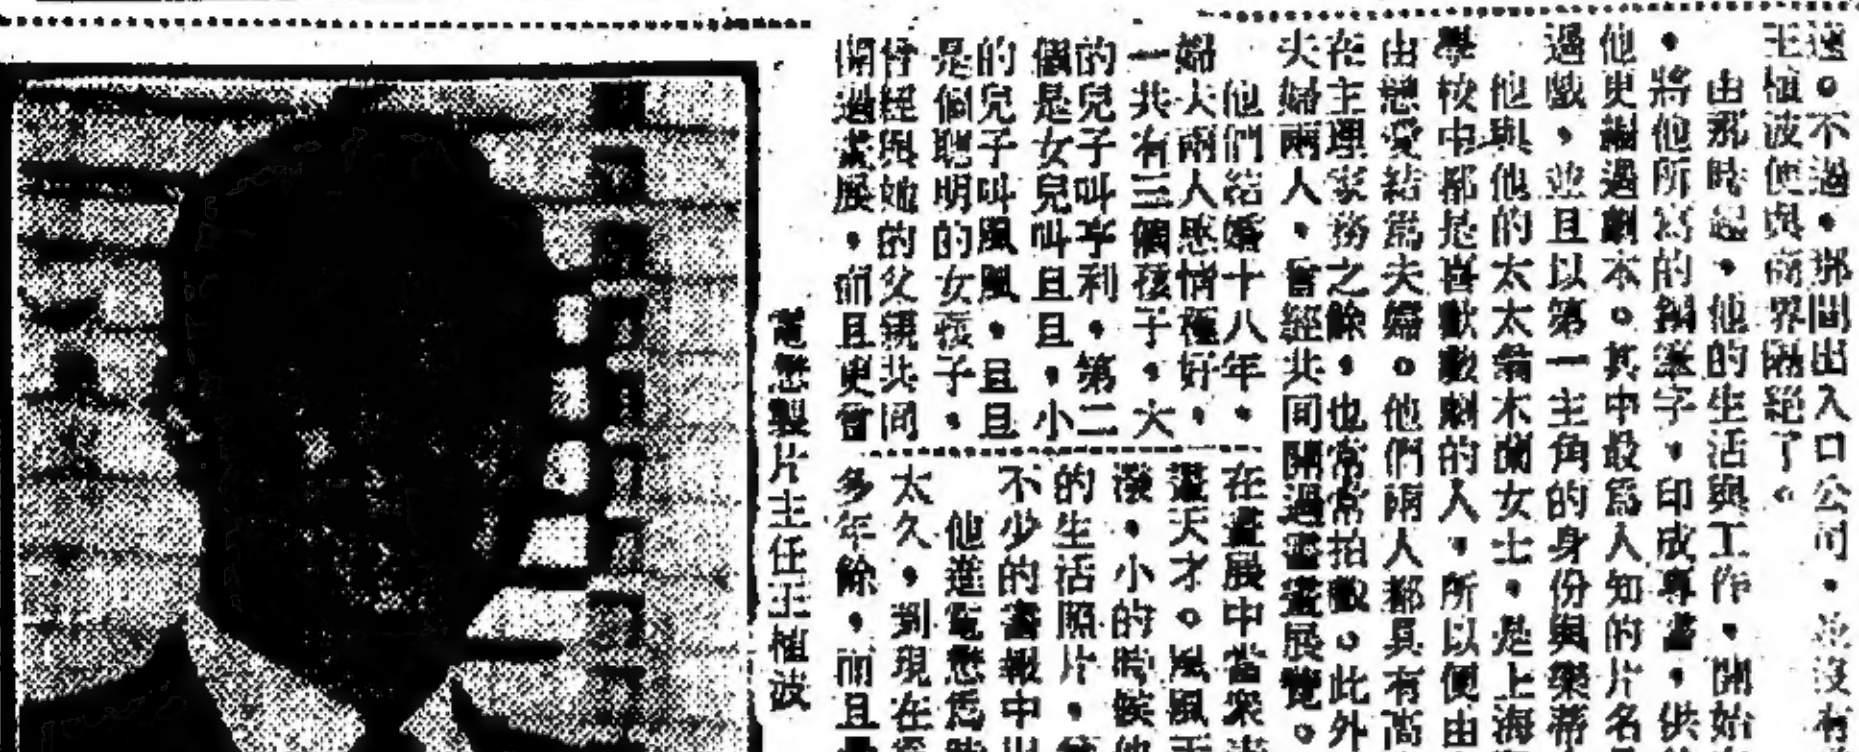 速。不過，那間出入口公司，並沒有
王植波便與商界隔絕了。
由那時起，他的生活與工作，開始
，將他所寫的鋼筆字，印成專書，供
他更編過劇本。其中最爲人知的片名
過戲，並且以第一主角的身份與樂蒂
他與他的太太翁木蘭女士，是上海
學校中都是喜歡戲劇的人，所以便由
由戀愛結爲夫婦。他們兩人都具有高
在主理家務之餘，也常常拍戲。此外
夫婦兩人，曾經共同開過書畫展覽。
他們結婚十八年，
婦夫兩人感情極好，
一共有三個孩子，大
的兒子叫亨利，第二
個是女兒叫旦旦，小
的兒子叫風風，旦旦
是個聰明的女孩子，
曾經與她的父親共同
開過畫展，而且更會
在畫展中當衆
天才。風風
潑，小的時候他
的生活照片，
不少的書報中出
他進電懋爲
太久，到現在
多年餘，而且
電懋製片主任王植波